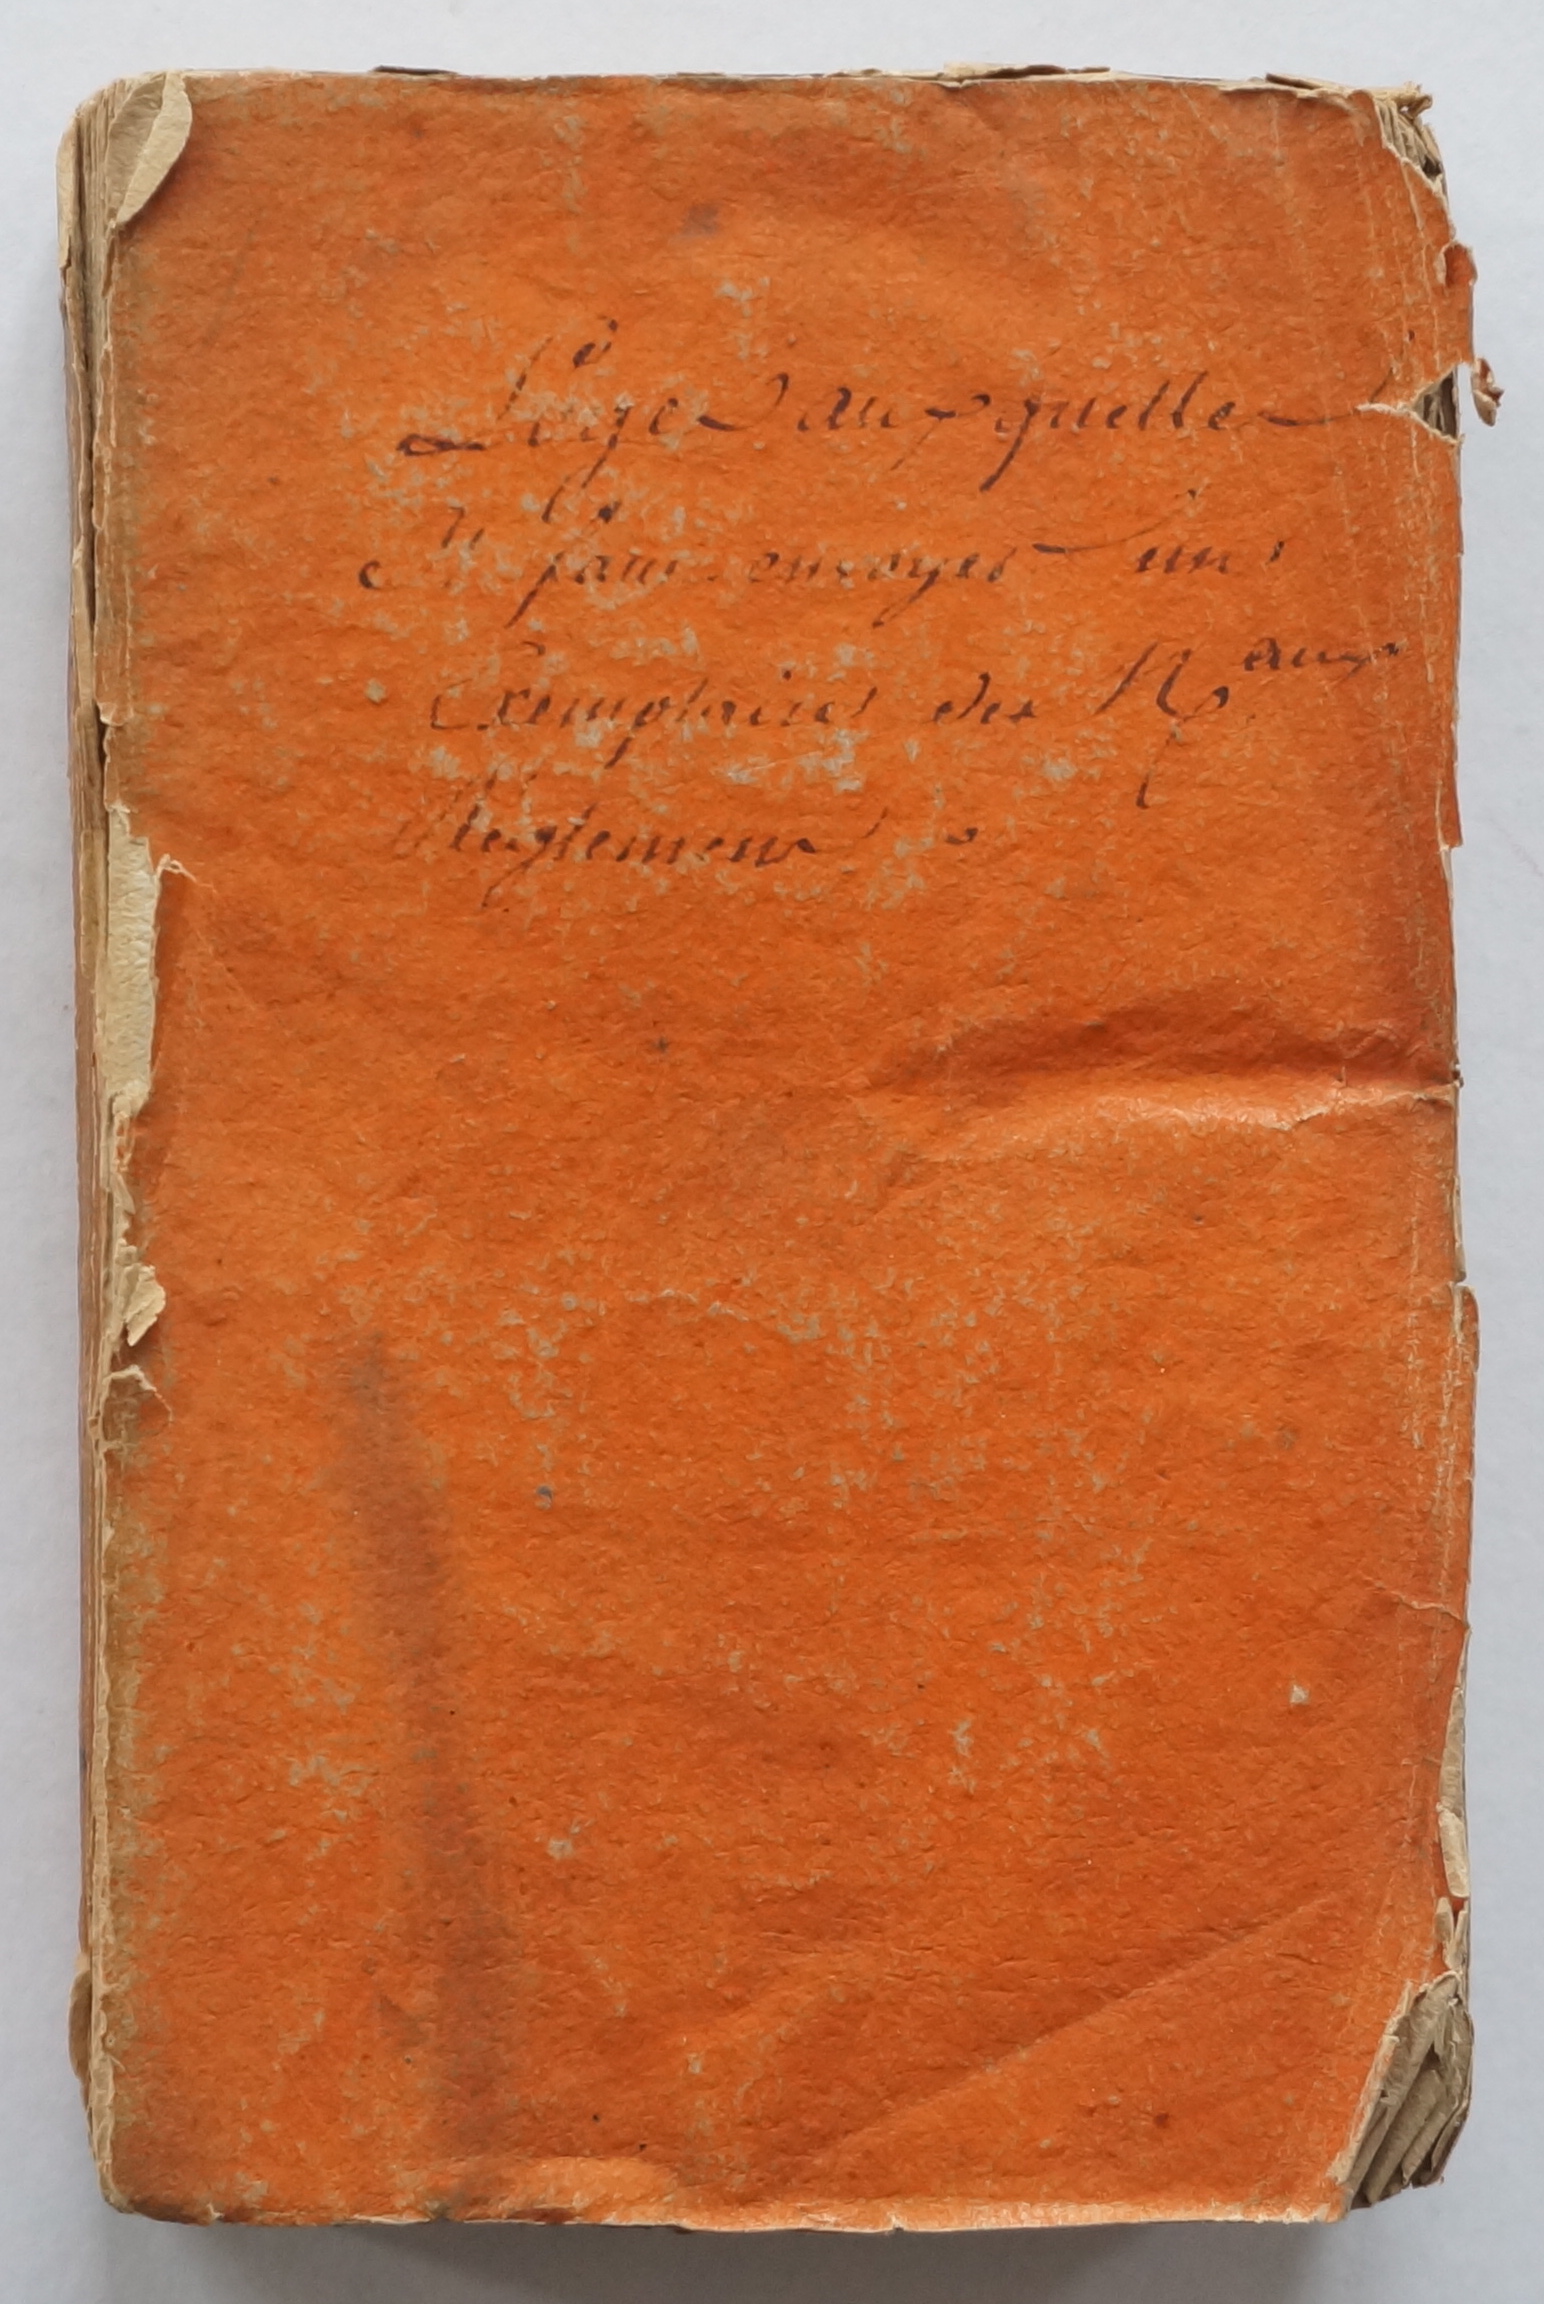 Loges auxquelles
Il faut envoyer un
Exemplaire des Nᵃᵘˣ
Reglemens.